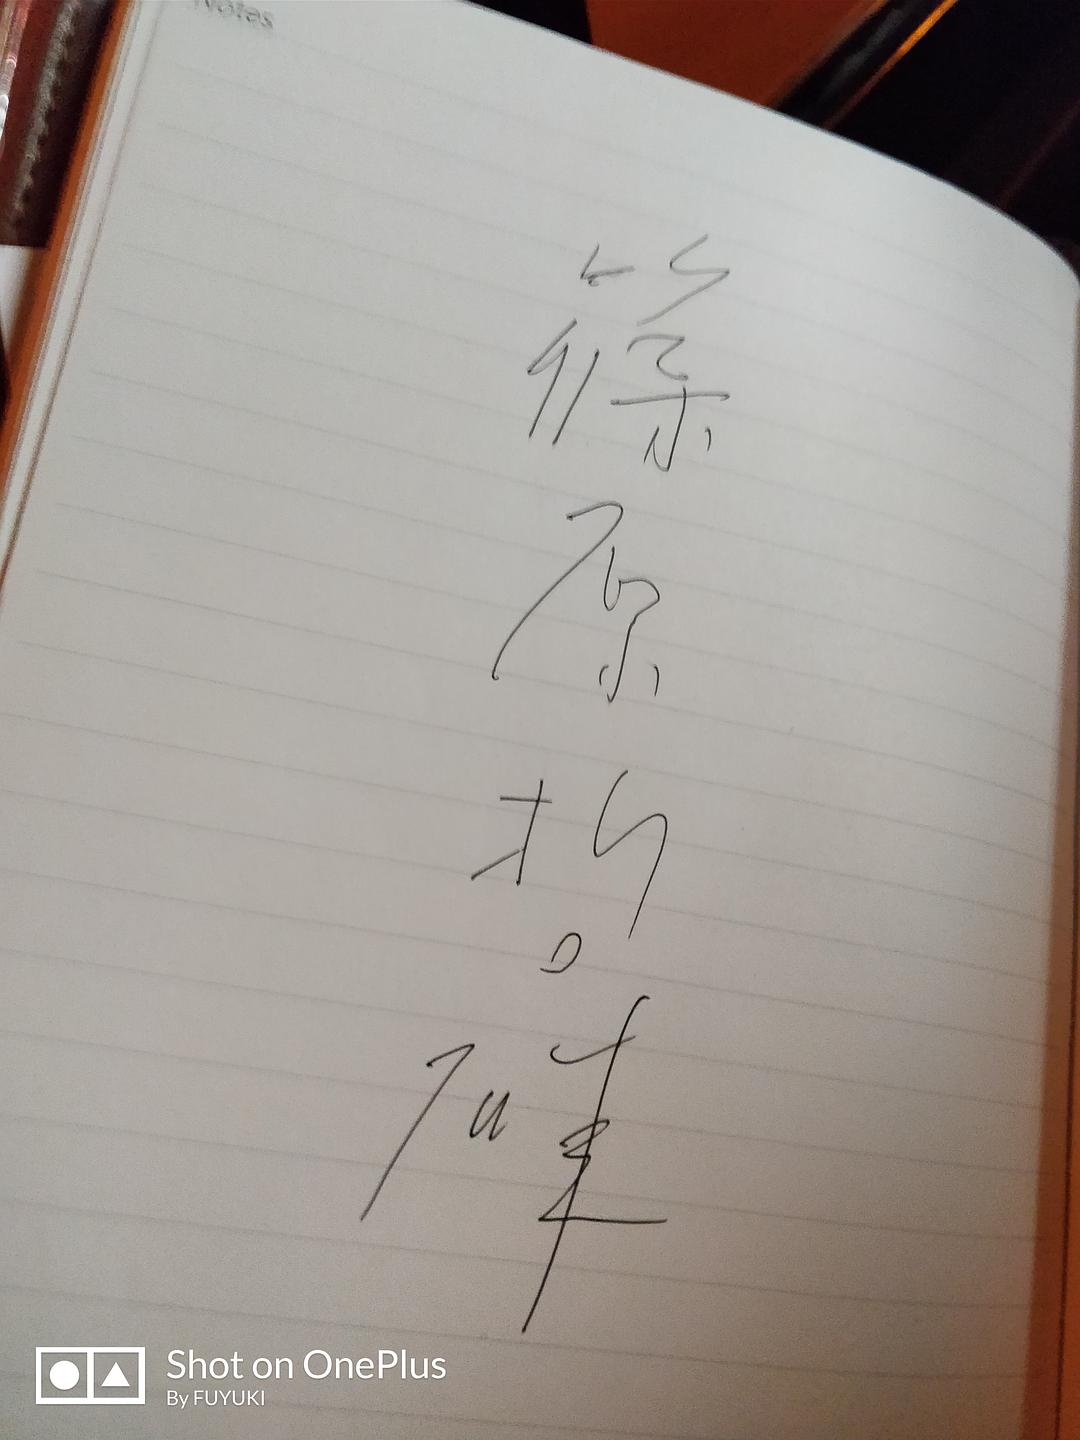 Notes
篠原哲雄
Shot on OnePlus
By FUYUKI